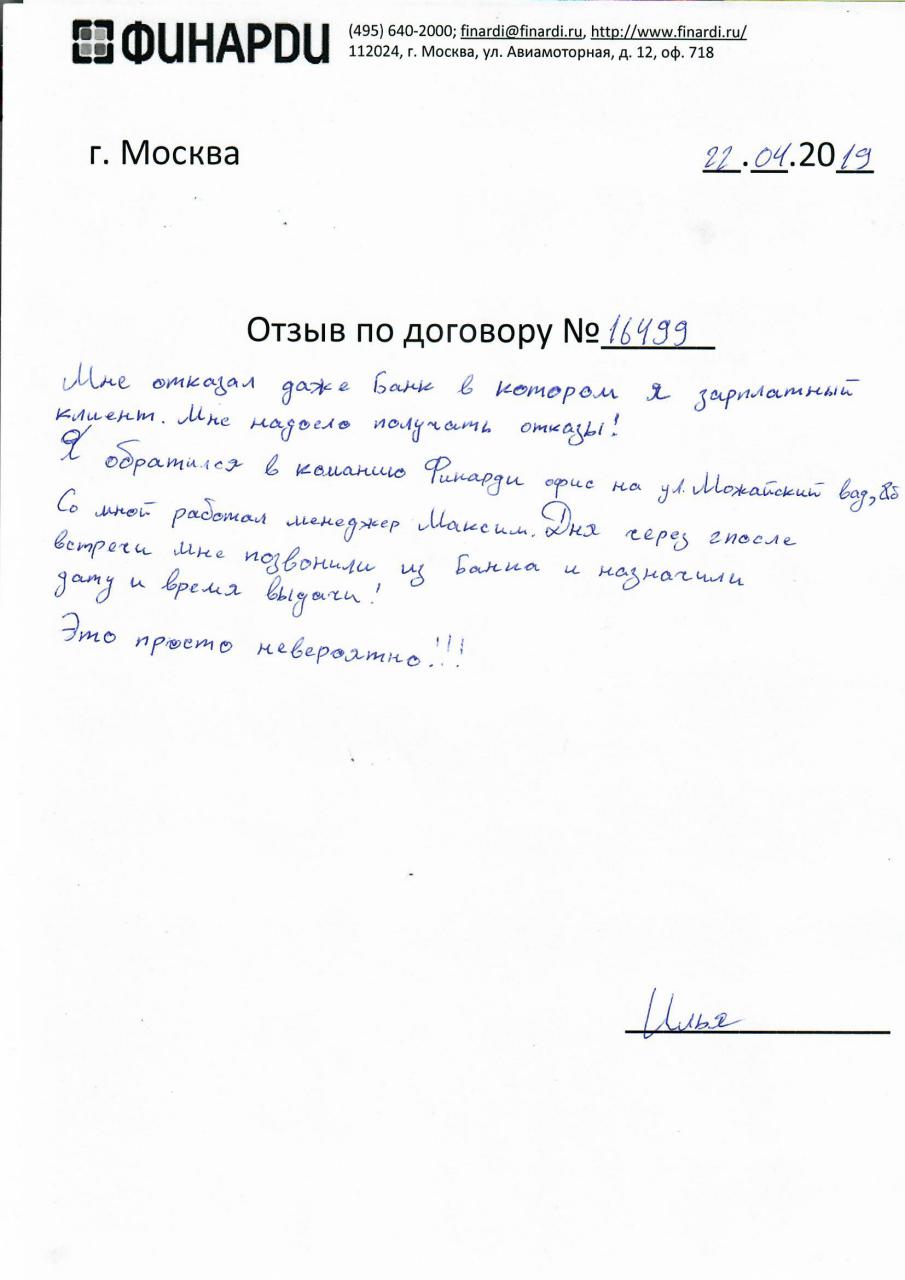 ФИНАРДИ
(495) 640-2000; finardi@finardi.ru, http://www.finardi.ru/
112024, г. Москва, ул. Авиамоторная, д. 12, оф. 718
г. Москва
22.04.2019
Отзыв по договору №16499
Мне отказал даже Банк в котором я зарплатный
клиент. Мне надоело получать отказы!
Я обратился в команию Финарди офис на ул. Можайский вад, 8б
Со мной работал менеджер Максим. Дня через 2 после
встречи мне позвонили из банка и назначили
дату и время выдачи!
Это просто невероятно!!!
Илья